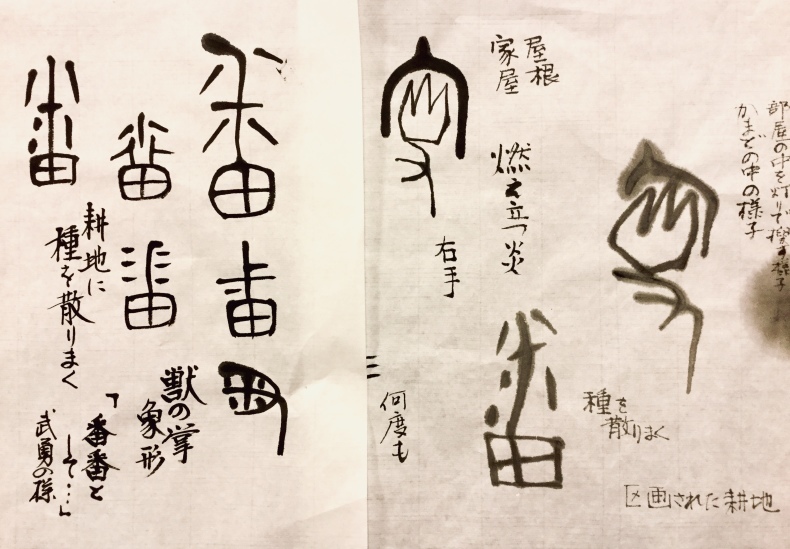 部屋の中を灯りで捜す様子
かまどの中の様子
屋根
家屋
燃え立つ炎
右手
種を
散りまく
区画された耕地
三
何度も
獣の掌
象形
「番番と
して…」
武勇の様
耕地に
種を散りまく
番